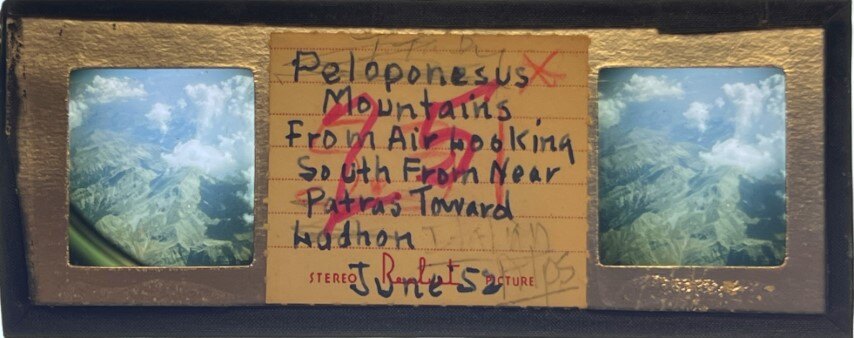 Peloponesus X
Mountains
From Air Looking
South From Near
Patras Toward
Ladhon
STEREO Realist PICTURE
June 52